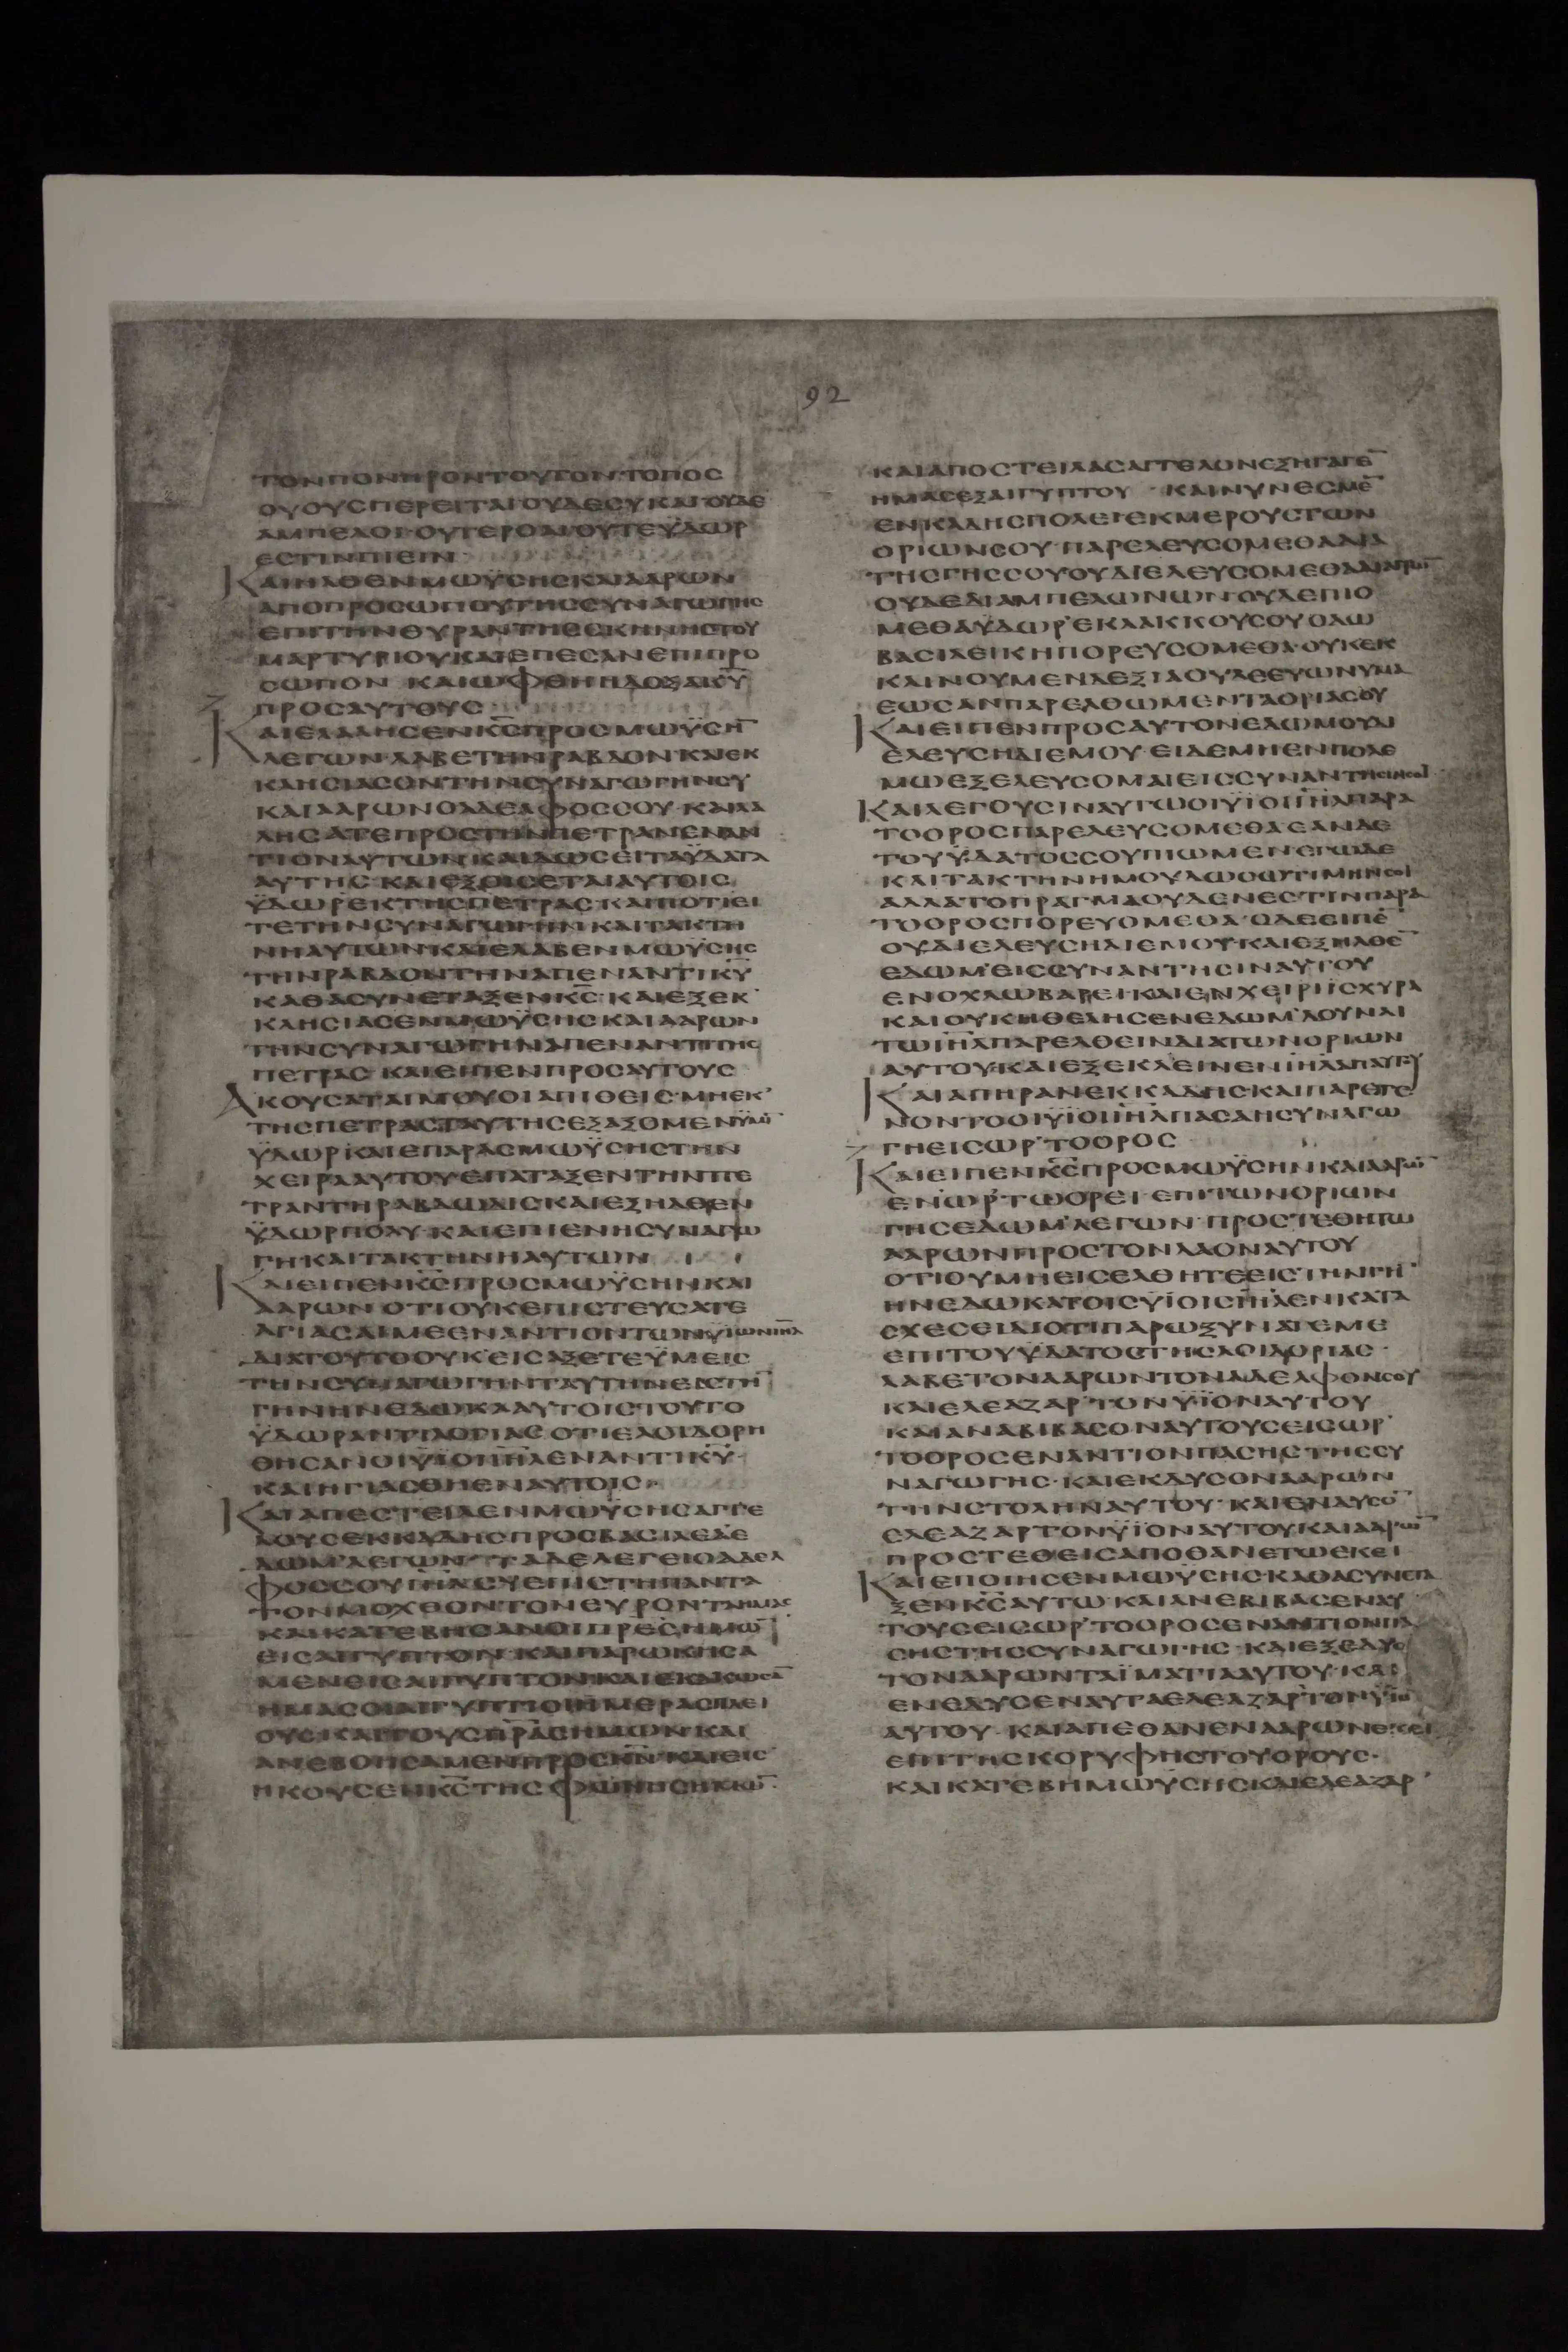 92
ΤΟΝΠΟΝΗΡΟΝΤΟΥΤΟΝ·ΤΟΠΟΣ
ΟΥΟΥΣΠΕΡΕΙΤΑΙΟΥΔΕΣΥΚΑΙΟΥΔΕ
ΑΜΠΕΛΟΙ·ΟΥΤΕΡΟΑΙΟΥΤΕΫΔΩΡ
ΕΣΤΙΝΠΙΕΙΝ
ΚΑΙΗΛΘΕΝΜΩΫΣΗΣΚΑΙΑΑΡΩΝ
ΑΠΟΠΡΟΣΩΠΟΥΤΗΣΣΥΝΑΓΩΓΗΣ
ΕΠΙΤΗΝΘΥΡΑΝΤΗΣΣΚΗΝΗΣΤΟΥ
ΜΑΡΤΥΡΙΟΥΚΑΙΕΠΕΣΑΝΕΠΙΠΡΟ
ΣΩΠΟΝ ΚΑΙΩΦΘΗΗΔΟΞΑΚ̅Υ̅
ΠΡΟΣΑΥΤΟΥΣ
ΚΑΙΕΛΑΛΗΣΕΝΚ̅Σ̅ΠΡΟΣΜΩΫΣΗ̅
ΛΕΓΩΝ·ΛΑΒΕΤΗΝΡΑΒΔΟΝ·ΚΑΙΕΚ
ΚΛΗΣΙΑΣΟΝΤΗΝΣΥΝΑΓΩΓΗΝΣΥ
ΚΑΙΑΑΡΩΝΟΑΔΕΛΦΟΣΣΟΥ·ΚΑΙΛΑ
ΛΗΣΑΤΕΠΡΟΣΤΗΝΠΕΤΡΑΝΕΝΑΝ
ΤΙΟΝΑΥΤΩΝ·ΚΑΙΔΩΣΕΙΤΑΫΔΑΤΑ
ΑΥΤΗΣ·ΚΑΙΕΞΟΙΣΕΤΑΙΑΥΤΟΙΣ
ΫΔΩΡΕΚΤΗΣΠΕΤΡΑΣ·ΚΑΙΠΟΤΙΕΙ
ΤΕΤΗΝΣΥΝΑΓΩΓΗΝΚΑΙΤΑΚΤΗ
ΝΗΑΥΤΩΝ·ΚΑΙΕΛΑΒΕΝΜΩΫΣΗΣ
ΤΗΝΡΑΒΔΟΝΤΗΝΑΠΕΝΑΝΤΙΚ̅Υ̅
ΚΑΘΑΣΥΝΕΤΑΞΕΝΚ̅Σ̅·ΚΑΙΕΞΕΚ
ΚΛΗΣΙΑΣΕΝΜΩΫΣΗΣΚΑΙΑΑΡΩΝ
ΤΗΝΣΥΝΑΓΩΓΗΝΑΠΕΝΑΝΤΙΤΗΣ
ΠΕΤΡΑΣ·ΚΑΙΕΙΠΕΝΠΡΟΣΑΥΤΟΥΣ
ΑΚΟΥΣΑΤΑΙΜΟΥΟΙΑΠΙΘΕΙΣ·ΜΗΕΚ
ΤΗΣΠΕΤΡΑΣΤΑΥΤΗΣΕΞΑΞΟΜΕΝΫΜΙ̅
ΫΔΩΡ·ΚΑΙΕΠΑΡΑΣΜΩΫΣΗΣΤΗΝ
ΧΕΙΡΑΑΥΤΟΥΕΠΑΤΑΞΕΝΤΗΝΠΕ
ΤΡΑΝΤΗΡΑΒΔΩΔΙΣ·ΚΑΙΕΞΗΛΘΕΝ
ΫΔΩΡΠΟΛΥ·ΚΑΙΕΠΙΕΝΗΣΥΝΑΓΩ
ΓΗΚΑΙΤΑΚΤΗΝΗΑΥΤΩΝ
ΚΑΙΕΙΠΕΝΚ̅Σ̅ΠΡΟΣΜΩΫΣΗΝΚΑΙ
ΑΑΡΩΝ·ΟΤΙΟΥΚΕΠΙΣΤΕΥΣΑΤΕ
ΑΓΙΑΣΑΙΜΕΕΝΑΝΤΙΟΝΤΩΝΥΪΩΝΙ̅Η̅Λ̅
ΔΙΑΤΟΥΤΟΟΥΚΕΙΣΑΞΕΤΕΫΜΕΙΣ
ΤΗΝΣΥΝΑΓΩΓΗΝΤΑΥΤΗΝΕΙΣΤΗ̅
ΓΗΝΗΝΕΔΩΚΑΑΥΤΟΙΣΤΟΥΤΟ
ΫΔΩΡΑΝΤΙΛΟΓΙΑΣ·ΟΤΙΕΛΟΙΔΟΡΗ
ΘΗΣΑΝΟΙΫΪΟΙΙ̅Η̅Λ̅ΕΝΑΝΤΙΚ̅Υ̅·
ΚΑΙΗΓΙΑΣΘΗΕΝΑΥΤΟΙΣ·
ΚΑΙΑΠΕΣΤΕΙΛΕΝΜΩΫΣΗΣΑΓΓΕ
ΛΟΥΣΕΚΚΑΔΗΣΠΡΟΣΒΑΣΙΛΕΑΕ
ΔΩΜ·ΛΕΓΩΝ·ΤΑΔΕΛΕΓΕΙΟΑΔΕΛ
ΦΟΣΣΟΥΙ̅Η̅Λ̅·ΣΥΕΠΙΣΤΗΠΑΝΤΑ
ΤΟΝΜΟΧΘΟΝΤΟΝΕΥΡΟΝΤΑΗΜΑΣ
ΚΑΙΚΑΤΕΒΗΣΑΝΟΙΠ̅Ρ̅Ε̅Σ̅ΗΜΩ̅
ΕΙΣΑΙΓΥΠΤΟΝ·ΚΑΙΠΑΡΩΚΗΣΑ
ΜΕΝΕΙΣΑΙΓΥΠΤΟΝ·ΚΑΙΕΚΑΚΩΣΑ̅
ΗΜΑΣΟΙΑΙΓΥΠΤΙΟΙΗΜΕΡΑΣΠΛΕΙ
ΟΥΣ·ΚΑΙΤΟΥΣΠ̅Ρ̅Α̅Σ̅ΗΜΩΝ·ΚΑΙ
ΑΝΕΒΟΗΣΑΜΕΝΠΡΟΣΚ̅Ν̅·ΚΑΙΕΙΣ
ΗΚΟΥΣΕΝΚ̅Σ̅ΤΗΣΦΩΝΗΣΗΜΩ̅·
ΚΑΙΑΠΟΣΤΕΙΛΑΣΑΓΓΕΛΟΝΕΞΗΓΑΓΕ̅
ΗΜΑΣΕΞΑΙΓΥΠΤΟΥ·ΚΑΙΝΥΝΕΣΜΕ̅
ΕΝΚΑΔΗΣΠΟΛΕΙ·ΕΚΜΕΡΟΥΣΤΩΝ
ΟΡΙΩΝΣΟΥ·ΠΑΡΕΛΕΥΣΟΜΕΘΑΔΙΑ
ΤΗΣΓΗΣΣΟΥ·ΟΥΔΙΕΛΕΥΣΟΜΕΘΑΔΙΑΓΡΩ̅
ΟΥΔΕΔΙΑΜΠΕΛΩΝΩΝ·ΟΥΔΕΠΙΟ
ΜΕΘΑΫΔΩΡ·ΕΚΛΑΚΚΟΥΣΟΥΟΔΩ
ΒΑΣΙΛΕΙΚΗΠΟΡΕΥΣΟΜΕΘΑ·ΟΥΚΕΚ
ΚΑΙΝΟΥΜΕΝΔΕΞΙΑΟΥΔΕΕΥΩΝΥΜΑ
ΕΩΣΑΝΠΑΡΕΛΘΩΜΕΝΤΑΟΡΙΑΣΟΥ
ΚΑΙΕΙΠΕΝΠΡΟΣΑΥΤΟΝΕΔΩΜΟΥΔΙ
ΕΛΕΥΣΗΔΙΕΜΟΥ·ΕΙΔΕΜΗΕΝΠΟΛΕ
ΜΩΕΞΕΛΕΥΣΟΜΑΙΕΙΣΣΥΝΑΝΤΗΣΙΝΣΟΙ
ΚΑΙΛΕΓΟΥΣΙΝΑΥΤΩΟΙΥΪΟΙΙ̅Η̅Λ̅ΠΑΡΑ
ΤΟΟΡΟΣΠΑΡΕΛΕΥΣΟΜΕΘΑ·ΕΑΝΔΕ
ΤΟΥΫΔΑΤΟΣΣΟΥΠΙΩΜΕΝΕΓΩΔΕ
ΚΑΙΤΑΚΤΗΝΗΜΟΥΔΩΣΩΤΙΜΗΝΣΟΙ
ΑΛΛΑΤΟΠΡΑΓΜΑΟΥΔΕΝΕΣΤΙΝΠΑΡΑ
ΤΟΟΡΟΣΠΟΡΕΥΟΜΕΘΑ·ΟΔΕΕΙΠΕ̅
ΟΥΔΙΕΛΕΥΣΗΔΙΕΜΟΥ·ΚΑΙΕΞΗΛΘΕ̅
ΕΔΩΜ·ΕΙΣΣΥΝΑΝΤΗΣΙΝΑΥΤΟΥ
ΕΝΟΧΛΩΒΑΡΕΙ·ΚΑΙΕΝΧΕΙΡΙΪΣΧΥΡΑ
ΚΑΙΟΥΚΗΘΕΛΗΣΕΝΕΔΩΜ·ΔΟΥΝΑΙ
ΤΩΙ̅Η̅Λ̅ΠΑΡΕΛΘΕΙΝΔΙΑΤΩΝΟΡΙΩΝ
ΑΥΤΟΥ·ΚΑΙΕΞΕΚΛΕΙΝΕΝΙ̅Η̅Λ̅ΑΠΑΥΤΟΥ
ΚΑΙΑΠΗΡΑΝΕΚΚΑΔΗΣ·ΚΑΙΠΑΡΕΓΕ
ΝΟΝΤΟΟΙΥΪΟΙΙ̅Η̅Λ̅ΠΑΣΑΗΣΥΝΑΓΩ
ΓΗΕΙΣΩΡ·ΤΟΟΡΟΣ
ΚΑΙΕΙΠΕΝΚ̅Σ̅ΠΡΟΣΜΩΫΣΗΝΚΑΙΑΑΡΩ̅
ΕΝΩΡ·ΤΩΟΡΕΙ·ΕΠΙΤΩΝΟΡΙΩΝ
ΓΗΣΕΔΩΜ·ΛΕΓΩΝ·ΠΡΟΣΤΕΘΗΤΩ
ΑΑΡΩΝΠΡΟΣΤΟΝΛΑΟΝΑΥΤΟΥ
ΟΤΙΟΥΜΗΕΙΣΕΛΘΗΤΕΕΙΣΤΗΝΓΗ̅
ΗΝΕΔΩΚΑΤΟΙΣΥΪΟΙΣΙ̅Η̅Λ̅ΕΝΚΑΤΑ
ΣΧΕΣΕΙ·ΔΙΟΤΙΠΑΡΩΞΥΝΑΤΕΜΕ
ΕΠΙΤΟΥΫΔΑΤΟΣΤΗΣΛΟΙΔΟΡΙΑΣ·
ΛΑΒΕΤΟΝΑΑΡΩΝΤΟΝΑΔΕΛΦΟΝΣΟΥ
ΚΑΙΕΛΕΑΖΑΡ·ΤΟΝΫΪΟΝΑΥΤΟΥ
ΚΑΙΑΝΑΒΙΒΑΣΟΝΑΥΤΟΥΣΕΙΣΩΡ
ΤΟΟΡΟΣΕΝΑΝΤΙΟΝΠΑΣΗΣΤΗΣΣΥ
ΝΑΓΩΓΗΣ·ΚΑΙΕΚΔΥΣΟΝΑΑΡΩΝ
ΤΗΝΣΤΟΛΗΝΑΥΤΟΥ·ΚΑΙΕΝΔΥΣΟ̅
ΕΛΕΑΖΑΡΤΟΝΥΪΟΝΑΥΤΟΥ·ΚΑΙΑΑΡΩ̅
ΠΡΟΣΤΕΘΕΙΣΑΠΟΘΑΝΕΤΩΕΚΕΙ
ΚΑΙΕΠΟΙΗΣΕΝΜΩΫΣΗΣ·ΚΑΘΑΣΥΝΕΤΑ
ΞΕΝΚ̅Σ̅ΑΥΤΩ·ΚΑΙΑΝΕΒΙΒΑΣΕΝΑΥ
ΤΟΥΣΕΙΣΩΡ·ΤΟΟΡΟΣΕΝΑΝΤΙΟΝΠΑ
ΣΗΣΤΗΣΣΥΝΑΓΩΓΗΣ·ΚΑΙΕΞΕΔΥΣΕ
ΤΟΝΑΑΡΩΝΤΑΪΜΑΤΙΑΑΥΤΟΥ·ΚΑΙ
ΕΝΕΔΥΣΕΝΑΥΤΑΕΛΕΑΖΑΡΤΟΝΫΪΟ̅
ΑΥΤΟΥ·ΚΑΙΑΠΕΘΑΝΕΝΑΑΡΩΝΕΚΕΙ
ΕΠΙΤΗΣΚΟΡΥΦΗΣΤΟΥΟΡΟΥΣ·
ΚΑΙΚΑΤΕΒΗΜΩΫΣΗΣΚΑΙΕΛΕΑΖΑΡ